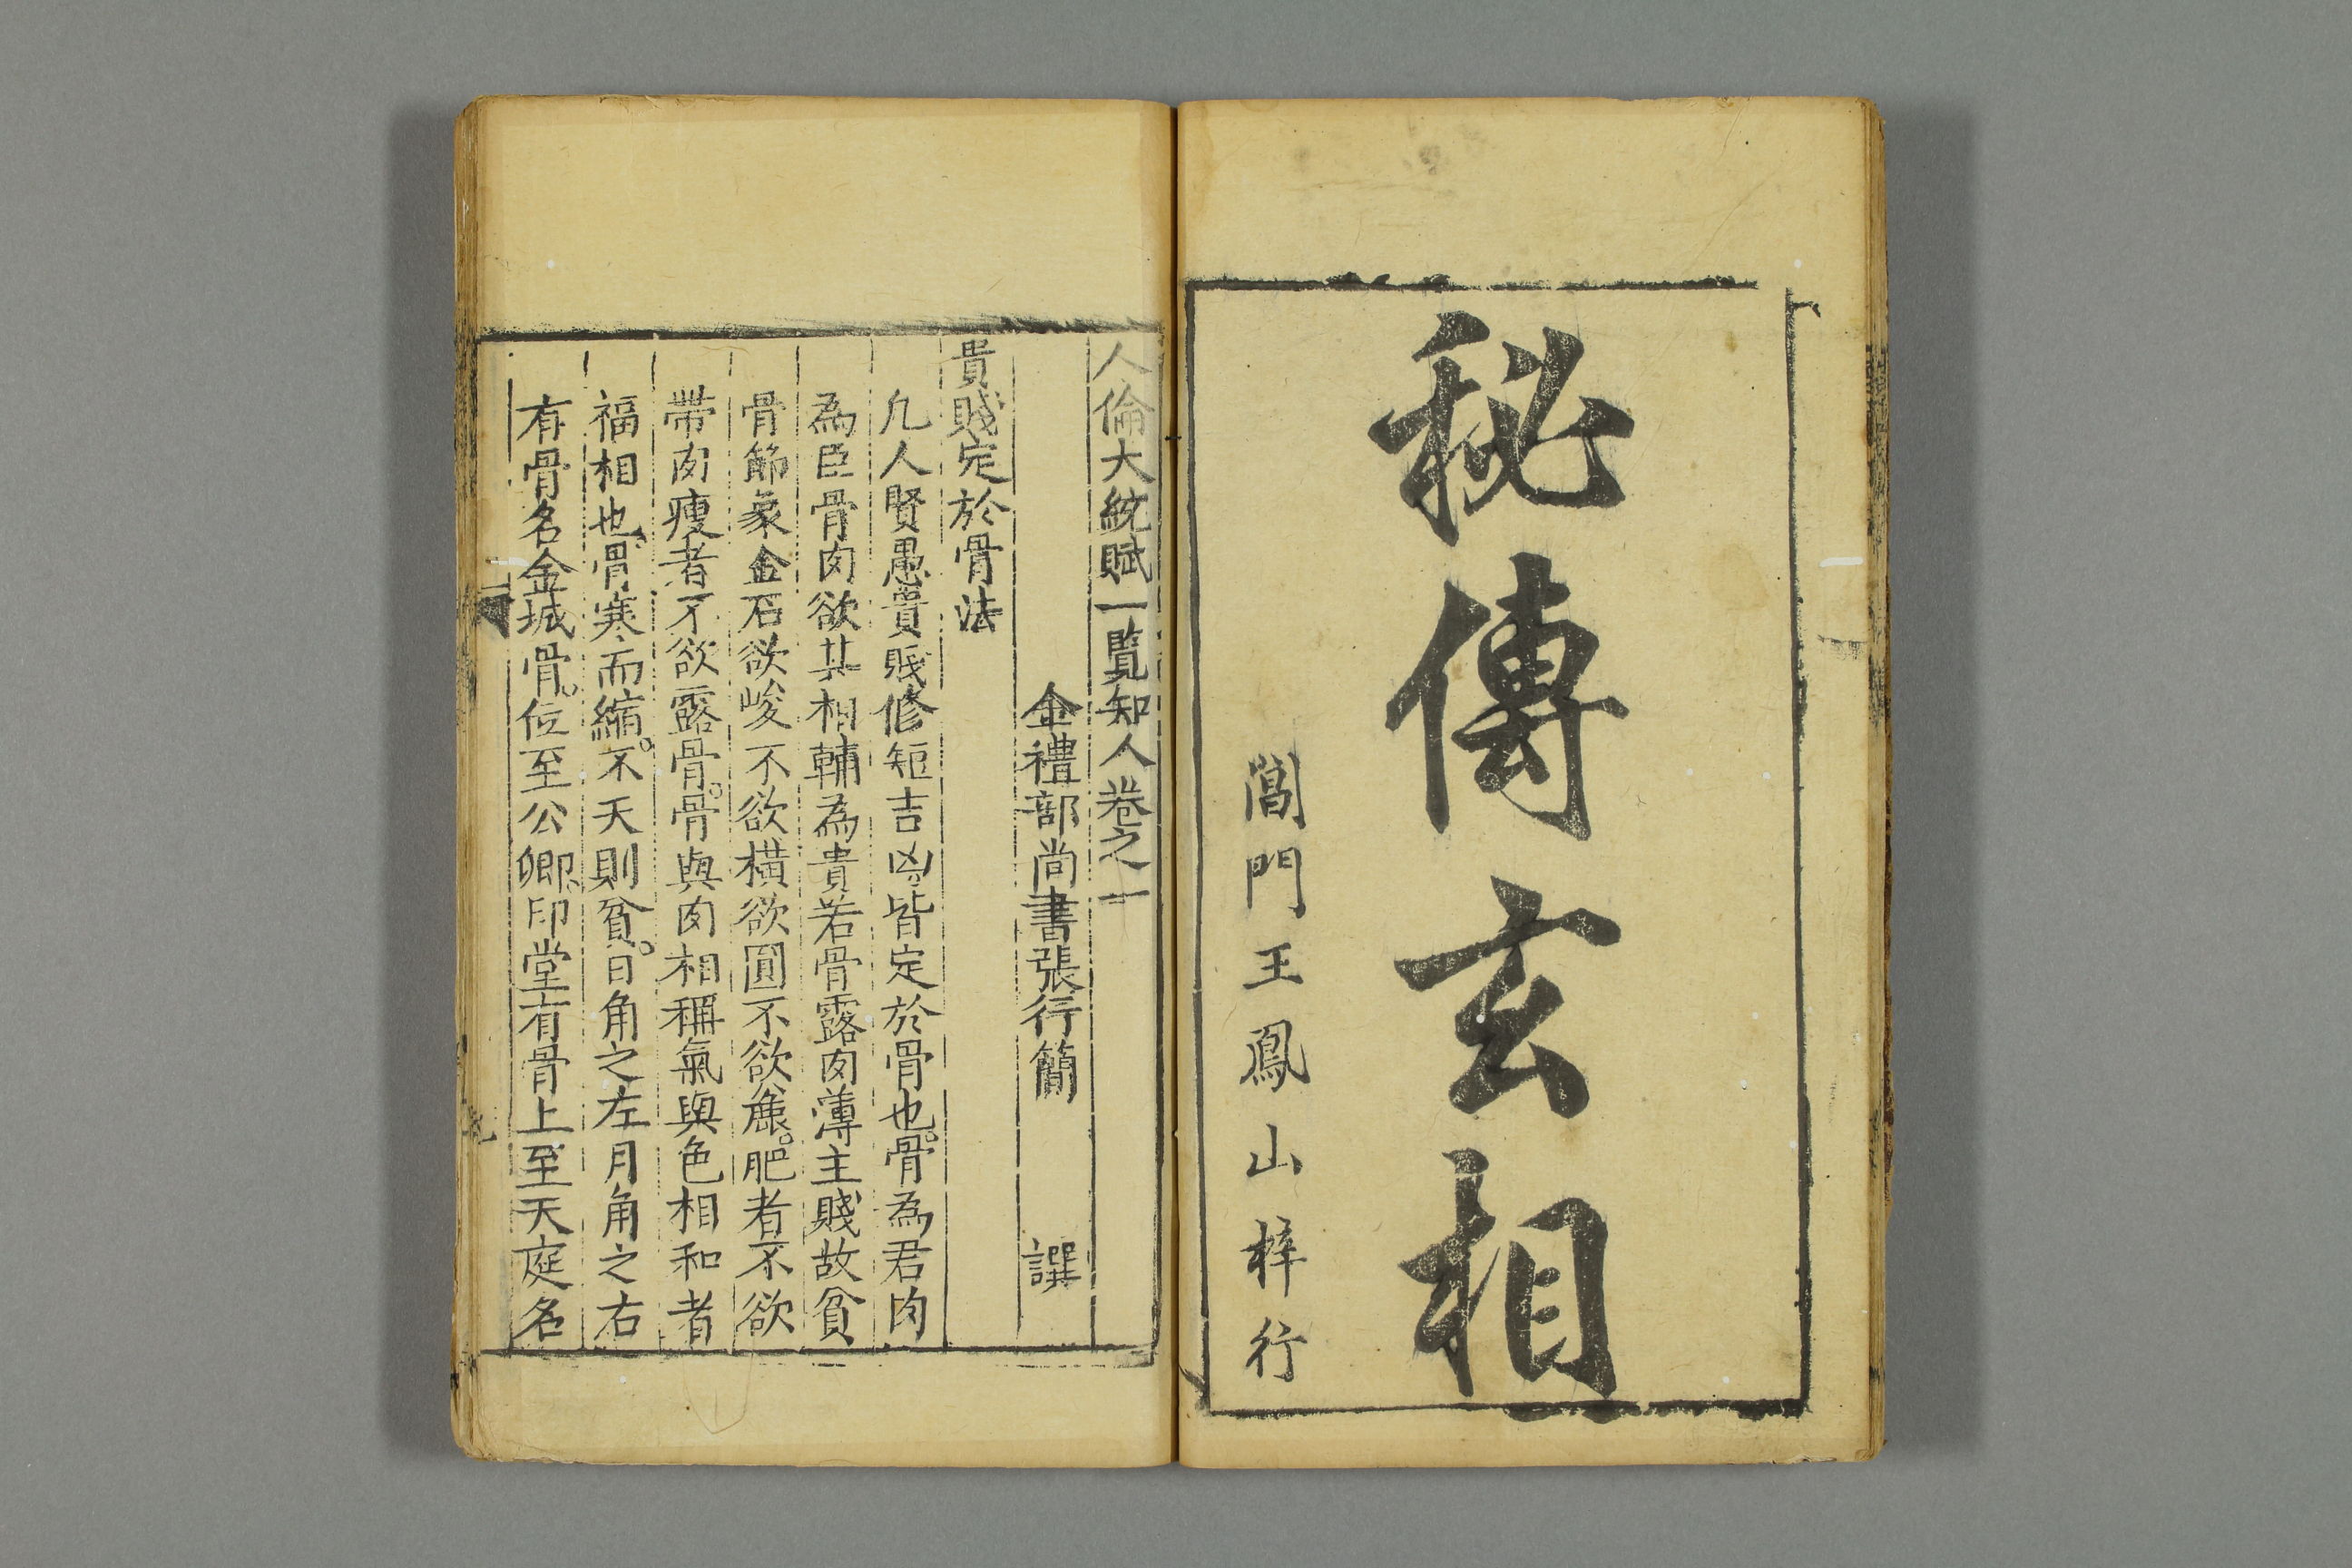 秘傳玄相
閶門王鳳山梓行
人倫大統賦一覽知人卷之一
金禮部尚書張行簡 譔
貴賤定於骨法
凢人賢愚貴賤修短吉凶皆定於骨也。骨為君肉
為臣骨肉欲其相輔為貴若骨露肉薄主賤故貧
骨節象金石欲峻不欲橫欲圓不欲麄。肥者不欲
帶肉瘦者不欲露骨。骨與肉相稱氣與色相和者
福相也。骨寒而縮。不夭則貧。日角之左月角之右
有骨名金城骨。位至公卿。印堂有骨上至天庭名